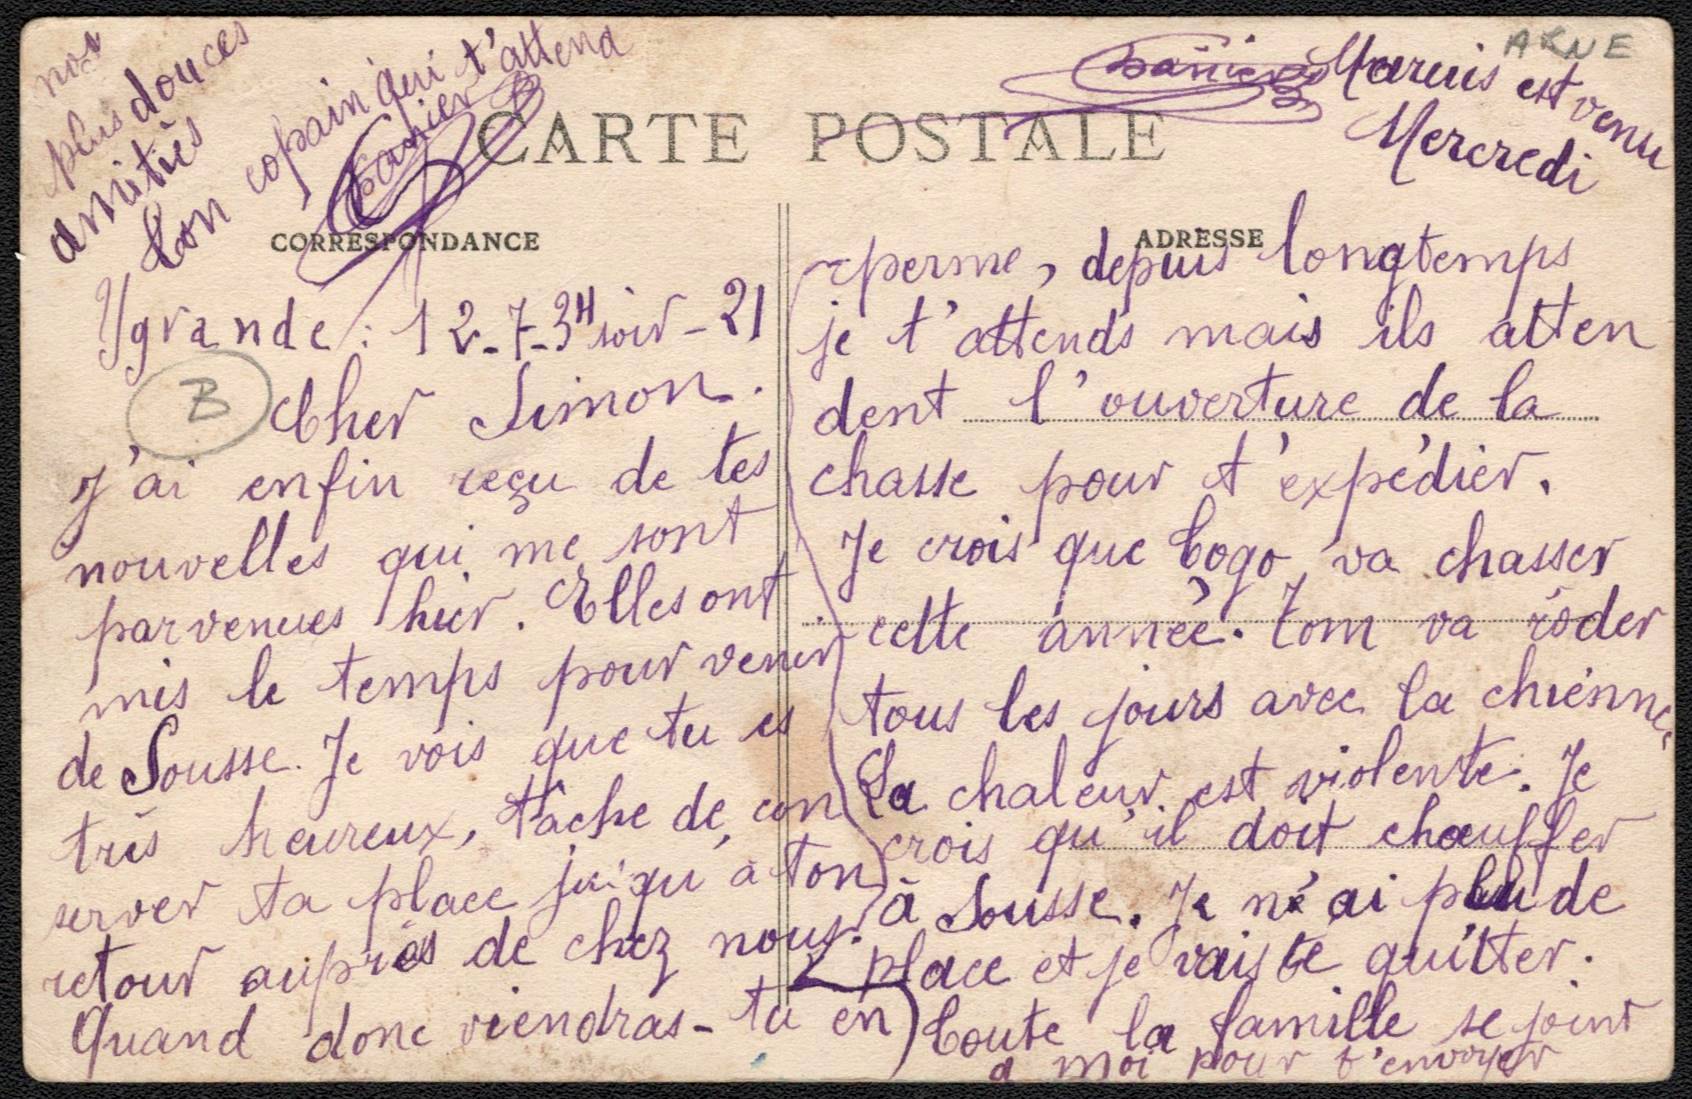 CARTE POSTALE
CORRESPONDANCE
ADRESSE
ARNE
B
Ygrande : 12-7-3H soir - 21
Cher Simon.
J'ai enfin reçu de tes
nouvelles qui me sont
parvenues hier. Elles ont
mis le temps pour venir
de Sousse. Je vois que tu es
très heureux, tâche de con
server ta place jusqu'à ton
retour auprès de chez nous.
Quand donc viendras-tu en
perme, depuis longtemps
je t'attends mais ils atten
dent l'ouverture de la
chasse pour t'expédier.
Je crois que Togo va chasser
cette année. Tom va rôder
tous les jours avec la chienne.
La chaleur est violente. Je
crois qu'il doit chauffer
à Sousse. Je n'ai plu de
place et je vais te quitter.
Toute la famille se joint
a moi pour t'envoyer
nos
plus douces
amitiés
Ton copain qui t'attend
Marius est venu
Mercredi